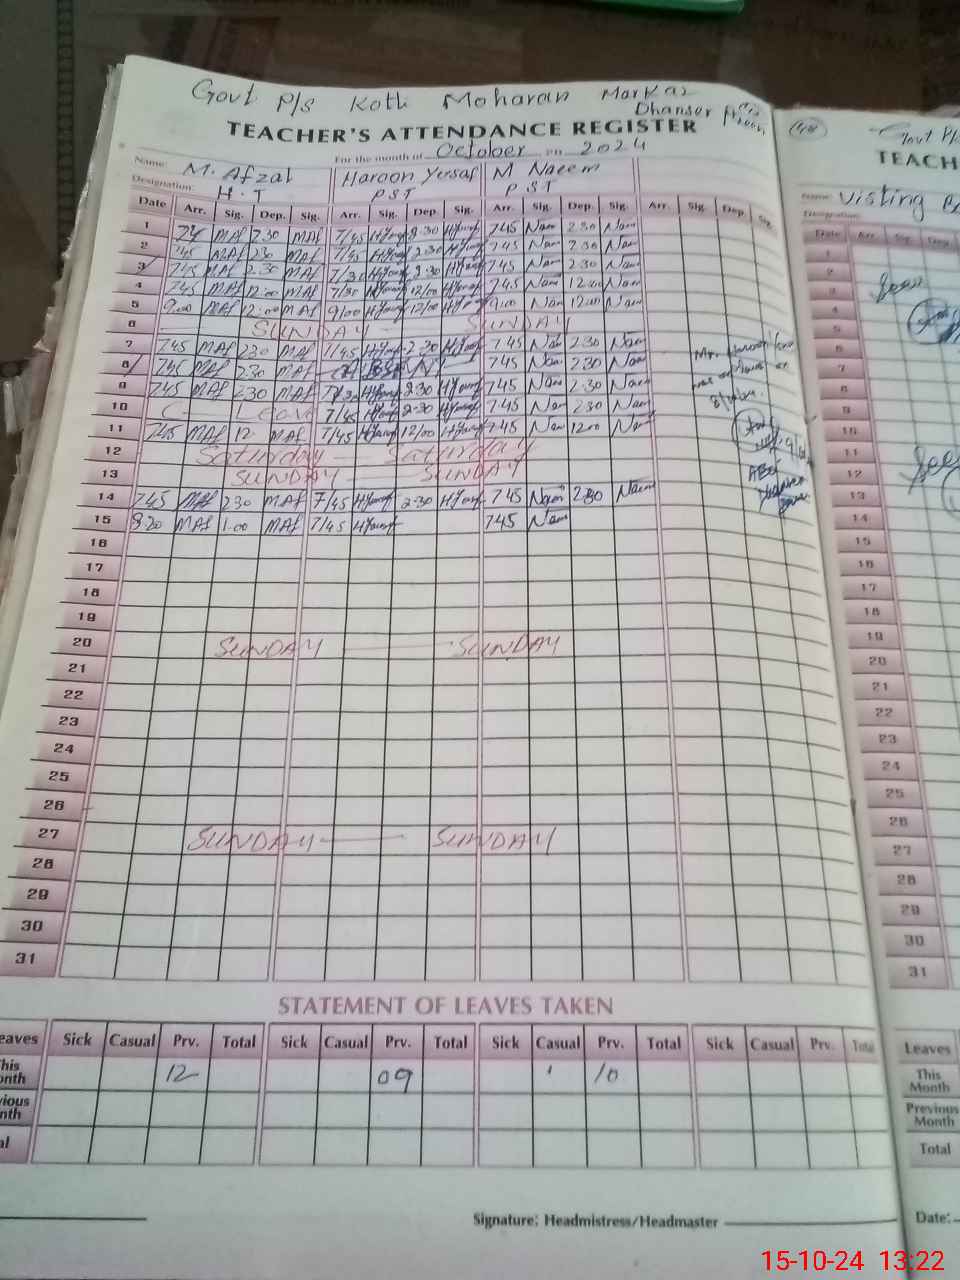 Govt P/S Kotli Moharan Markaz
Dhanser
TEACHER'S ATTENDANCE REGISTER
For the month of October 2024
Name: M. Afzal Haroon Yusaf M Naeem
Designation: H.T PST PST
Date Arr. Sig. Dep. Sig. Arr. Sig. Dep. Sig. Arr. Sig. Dep. Sig. Arr. Sig. Dep. Sig.
1 MAf 2.30 MAf 7/45 HYousf 2-30 HYousf 745 Nam 2.30 Nam
2 745 MAf 230 MAf 7/45 HYousf 2-30 HYousf 745 Nam 2.30 Nam
3 745 MAf 2.30 MAf 7/30 HYousf 2-30 HYousf 745 Nam 2.30 Nam
4 745 MAf 12.00 MAf 7/30 HYousf 12/00 HYousf 745 Nam 12.00 Nam
5 9.00 MAf 12.00 MAf 9/00 HYousf 12/00 HYousf 9.00 Nam 12.00 Nam
6 SUNDAY SUNDAY
7 745 MAf 230 MAf 7/45 HYousf 2-30 HYousf 745 Nam 2.30 Nam
8 745 MAf 2.30 MAf 745 Nam 2.30 Nam
9 745 MAf 2.30 MAf HYousf 2-30 HYousf 745 Nam 2.30 Nam
10 C Leave 7/45 HYousf 2-30 HYousf 745 Nam 230 Nam
11 745 MAf 12 MAf 7/45 HYousf 12/00 HYousf 745 Nam 1200 Nam
12 Saturday Saturday
13 SUNDAY SUNDAY
14 745 MAf 230 MAf 7/45 HYousf 2-30 HYousf 745 Naem 230 Naem
15 8.20 MAf 1.00 MAf 7/45 HYousf 745 Nam
16
17
18
19
20 SUNDAY SUNDAY
21
22
23
24
25
26
27 SUNDAY SUNDAY
28
29
30
31
STATEMENT OF LEAVES TAKEN
eaves Sick Casual Prv. Total Sick Casual Prv. Total Sick Casual Prv. Total Sick Casual Prv. Total
his onth 12 09 10
vious nth
al
Signature: Headmistress/Headmaster
TEACH
Name: Visting
Designation:
Date Arr. Sig. Dep.
1
2
3
4
5
6
7
8
9
10
11
12
13
14
15
16
17
18
19
20
21
22
23
24
25
26
27
28
29
30
31
Leaves
This Month
Previous Month
Total
Date:
15-10-24 13:22